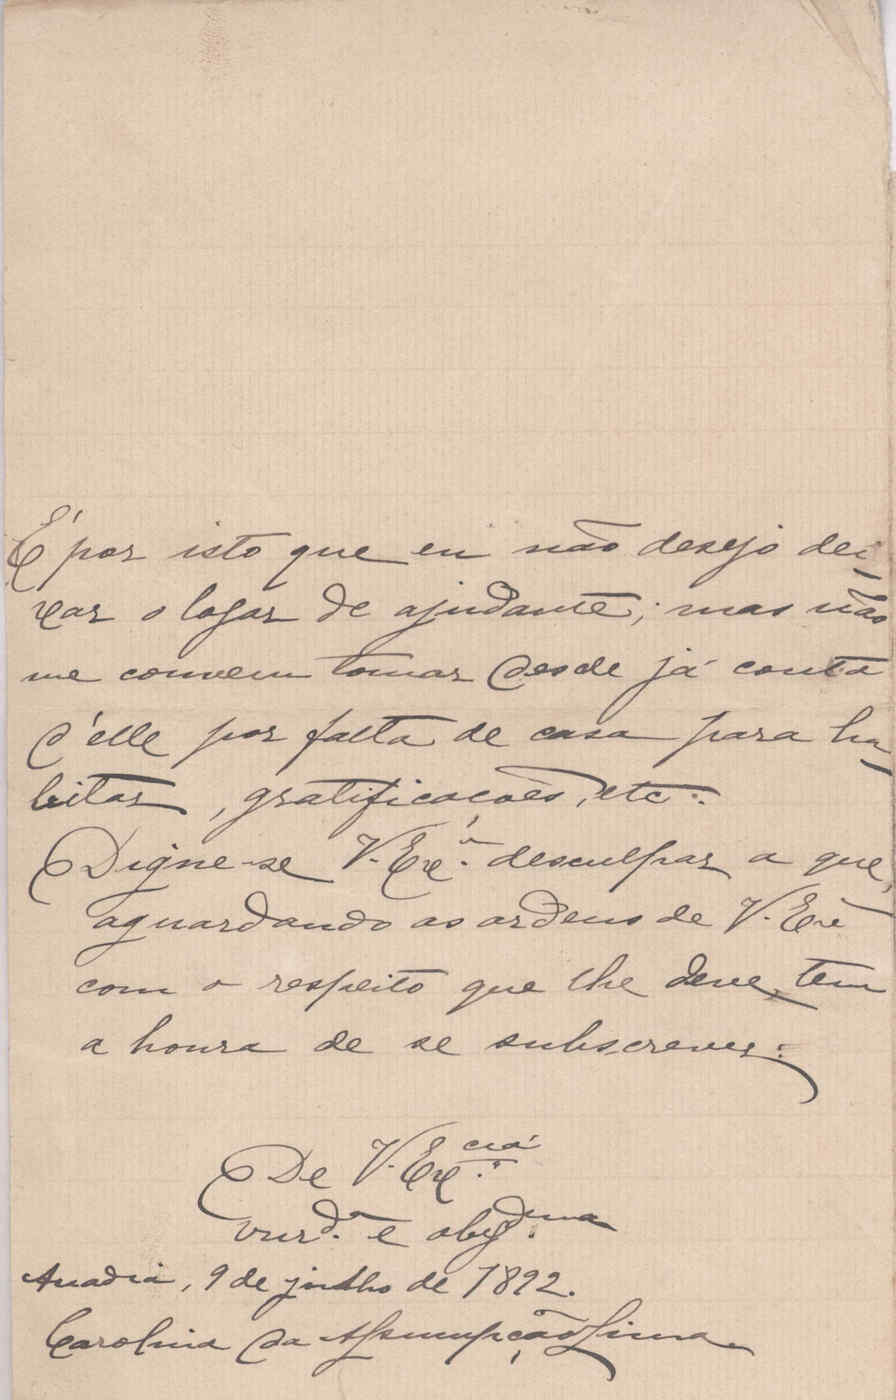 É por isto que eu não desejo dei-
xar o logar de ajudante; mas não
me convem tomar desde já conta
d'elle por falta de casa para ha-
bitar, gratificacões, etc..
Digne-se V. Ex.ª desculpar a que,
aguardando as ordens de V. Exª
com o respeito que lhe deve, tem
a honra de se subscrever:
De V. Ex.cia
e obg.dma
Anadia, 9 de julho de 1892.
Carolina da Assumpção Lima